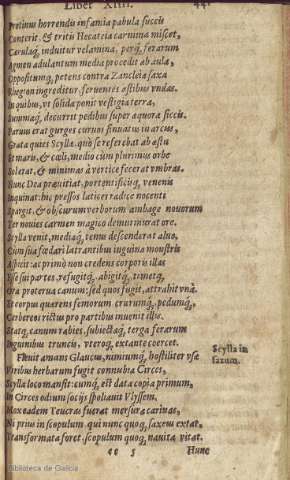 Liber XIIII. 44.
Protinus horrendis infamia pabula succis
Conterit, & tritis Hecateia carmina miscet,
Cærulaq́; induitur velamina, perq́; ferarum
Agmen adulantum media procedit ab aula,
Oppositumq́; petens contra Zancleia saxa
Rhegion ingreditur feruentes æstibus vndas.
In quibus, vt solida ponit vestigia terra,
Summaq́; decurrit pedibus super æquora siccis.
Paruus erat gurges curuos sinuatus in arcus,
Grata quies Scyllæ. quò se referebat ab æstu
Et maris, & cœli, medio cùm plurimus orbe
Sol erat, & minimas à vertice fecerat vmbras.
Hunc Dea præuitiat, portentificisq́; venenis
Inquinat: hic pressos latices radice nocenti
Spargit, & obscurum verborum ambage nouorum
Ter nouies carmen magico demurmurat ore.
Scylla venit, mediaq́; tenus descenderat aluo,
Cùm sua fœdari latrantibus inguina monstris
Aspicit: ac primò non credens corporis illas
Esse sui partes, refugitq́; abigitq́; timetq́;
Ora proterua canum: sed quos fugit, attrahit vnà.
Et corpus quærens femorum crurumq́; pedumq́;
Cerbereos rictus pro partibus inuenit illis.
Statq́; canum rabies, subiectaq́; terga ferarum
Inguinibus truncis, vteroq́; extante coercet.
Fleuit amans Glaucus, nimiumq́; hostiliter vsæ
Viribus herbarum fugit connubia Circes,
Scylla in
saxum.
Scylla loco mansit: cumq́; est data copia primum,
In Circes odium socijs spoliauit Vlyssem.
Mox eadem Teucras fuerat mersura carinas,
Ni prius in scopulum, qui nunc quoq́; saxeus extat.
Transformata foret. scopulum quoq́; nauita vitat.
5 Hunc
Biblioteca de Galicia